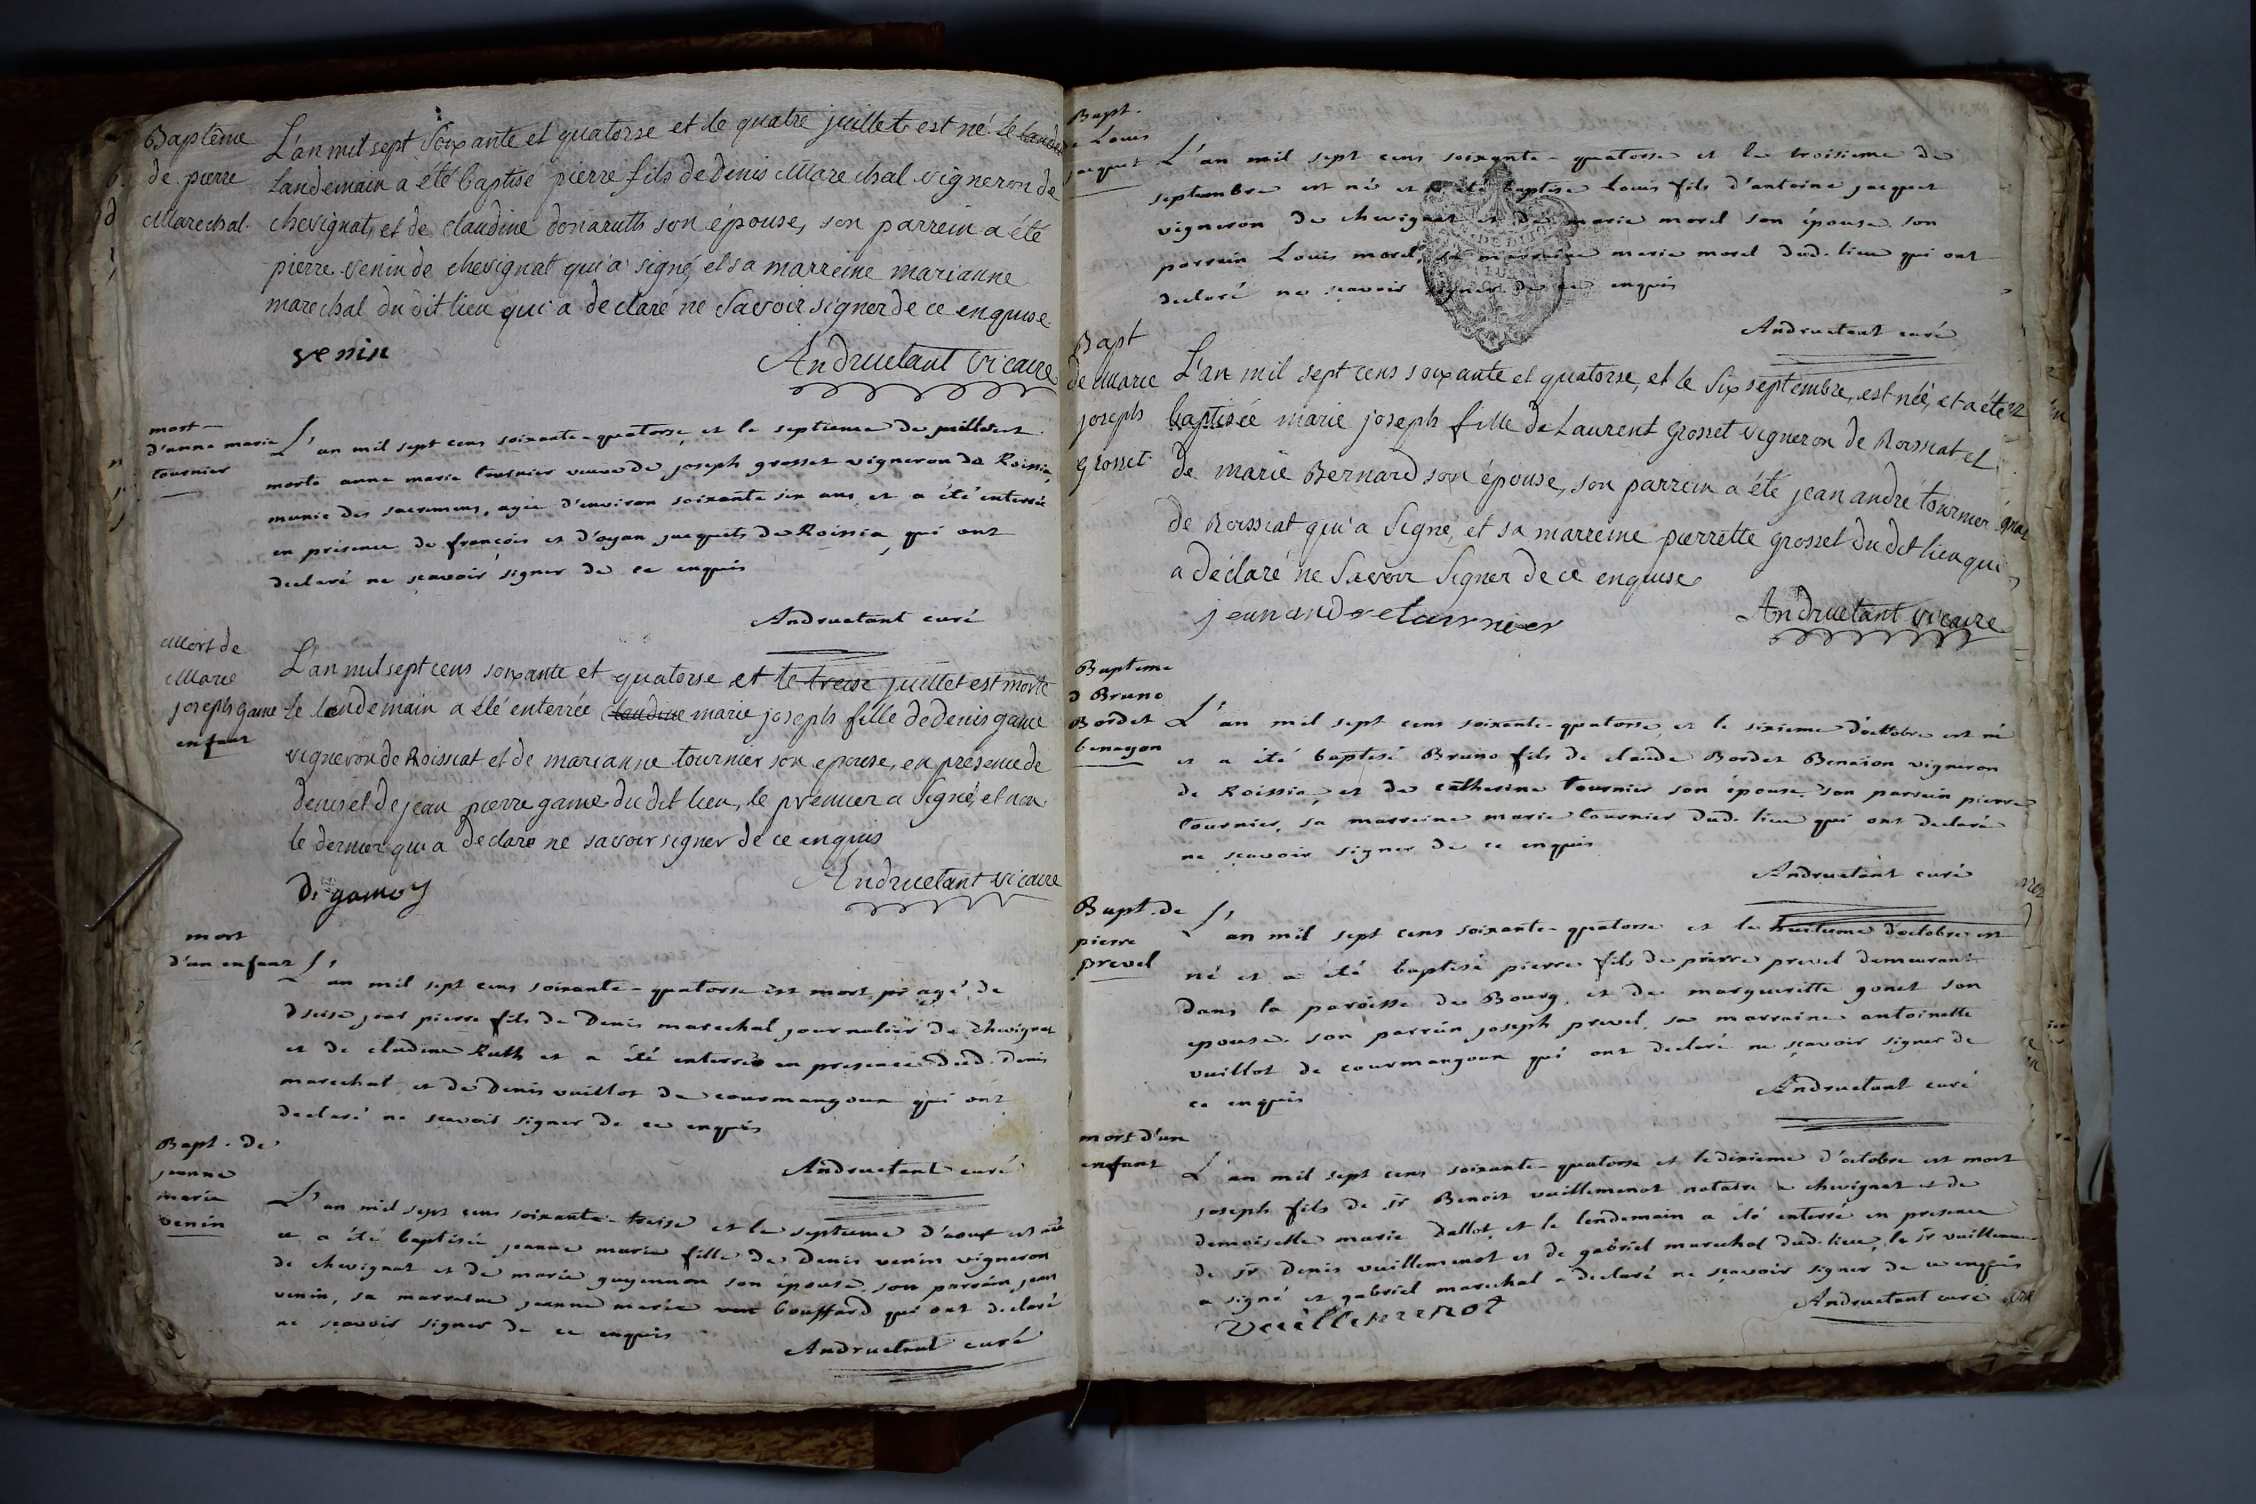 Baptême
de pierre
Marechal.
L'an mil sept soixante et quatorse et le quatre juillet est né le
Landemain a été baptisé pierre fils de Denis Marechal vigneron de
chevignat, et de claudine donaruth son épouse, son parrein a été
pierre venin de chevignat qui a signé, et sa marreine marianne
marechal du dit lieu qui a declaré ne savoir signer de ce enquise
venin
Andruetant vicaire
mort
d'anne marie
tournier
L'an mil sept cens soixante-quatorse et le septieme de juillet est
morte anne marie tournier veuve de joseph grosset vigneron de Roissia,
munie des sacremens, agée d'environ soixante six ans, et a été enterrée
en présence de françois et d'oyan jacquets de Roissia, qui ont
declaré ne sçavoir signer de ce enquis
Andruetant curé
Mort de
Marie
joseph game
enfant
L'an mil sept cens soixante et quatorse et le treise juillet est morte
le lendemain a été enterrée claudine marie joseph fille de denis game
vigneron de Roissiat et de marianne tournier son epouse, en présence de
denis et de jean pierre game du dit lieu, le premier a signé, et non
le dernier qui a declaré ne savoir signer de ce enquis
D. game
Andruetant vicaire
mort
d'un enfant
L'an mil sept cens soixante-quatorse est mort agé de
dseise jour pierre fils de Denis marechal journalier de chevignat
et de cludine Ruth et a été enterré en presence dud. denis
marechal et de Denis vuillot de courmangoux qui ont
declaré ne sçavoir signer de ce enquis
Andruetant curé
Bapt. de
jeanne
marie
venin
L'an mil sept cens soixante-treise et le septieme d'aout est née
et a été baptisée jeanne marie fille de Denis venin vigneron
de chevignat et de marie guyennon son épouse, son parrain jean
venin, sa marreine jeanne marie bouffard qui ont declaré
ne sçavoir signer de ce enquis
Andruetant curé
Bapt.
Louis
jacquet
L'an mil sept cens soixante-quatorse et le troisieme de
septembre est né et a été baptisé Louis fils d'antoine jacquet
vigneron de chevignat et de marie morel son épouse son
parrain Louis morel, sa marraine marie morel dud. lieu qui ont
declaré ne sçavoir signer de ce enquis
Andruetant curé
Bapt
de Marie
joseph
Grosset.
L'an mil sept cens soixante et quatorse, et le six septembre, est née, et a été
baptisée marie joseph fille de Laurent Grosset vigneron de Roissiat et
de marie Bernard son épouse, son parrein a été jean andré tournier
de Roissiat qui a signé, et sa marreine pierrette grosset du dit lieu qui
a déclaré ne savoir signer de ce enquise
jean andre tournier
Andruetant vicaire
Bapteme
d Bruno
Bordet
benayon
L'an mil sept cens soixante-quatorse, et le sixieme d'octobre est né
et a été baptisé Bruno fils de claude Bordet Benaion vigneron
de Roissia, et de catherine tournier son épouse, son parrein pierre
tournier, sa marreine marie tournier dud. lieu qui ont declaré
ne sçavoir signer de ce enquis
Andruetant curé
Bapt. de
pierre
prevel
L'an mil sept cens soixante-quatorse et le huitieme d'octobre est
né et a été baptisé pierre fils de pierre prevel demeurant
dans la paroisse de Bourg, et de margueritte gonet son
epouse son parrein joseph prevel, sa marraine antoinette
vuillot de courmangoux qui ont declaré ne sçavoir signer de
ce enquis
Andruetant curé
mort d'un
enfant
L'an mil sept cens soixante-quatorse et le dixieme d'octobre est mort
joseph fils de sr Benoit vuillemenot notaire a chevignat et de
demoiselle marie dallot, et le lendemain a été enterré en presence
de sr denis vuillemenot et de gabriel marechal dud. lieu, le sr vuillemenot
a signé et gabriel marechal a declaré ne sçavoir signer de ce enquis
Vuillemenot
Andruetant curé